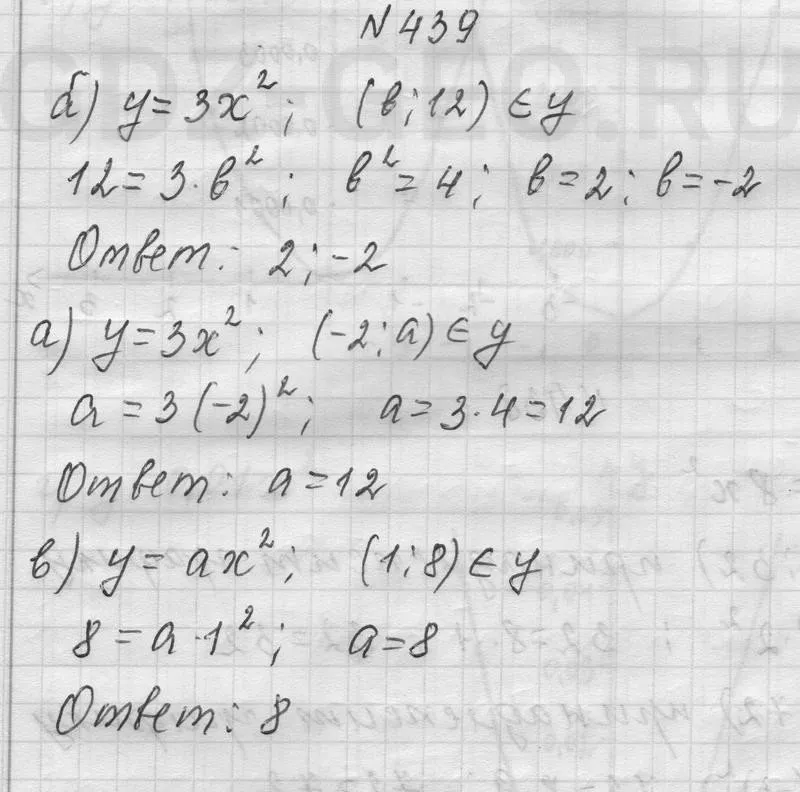 N 439
б) y = 3x²; (в; 12) ∈ y
12 = 3·в²; в² = 4; в = 2; в = -2
Ответ: 2; -2
а) y = 3x²; (-2; a) ∈ y
a = 3(-2)²; a = 3·4 = 12
Ответ: a = 12
в) y = ax²; (1; 8) ∈ y
8 = a·1²; a = 8
Ответ: 8